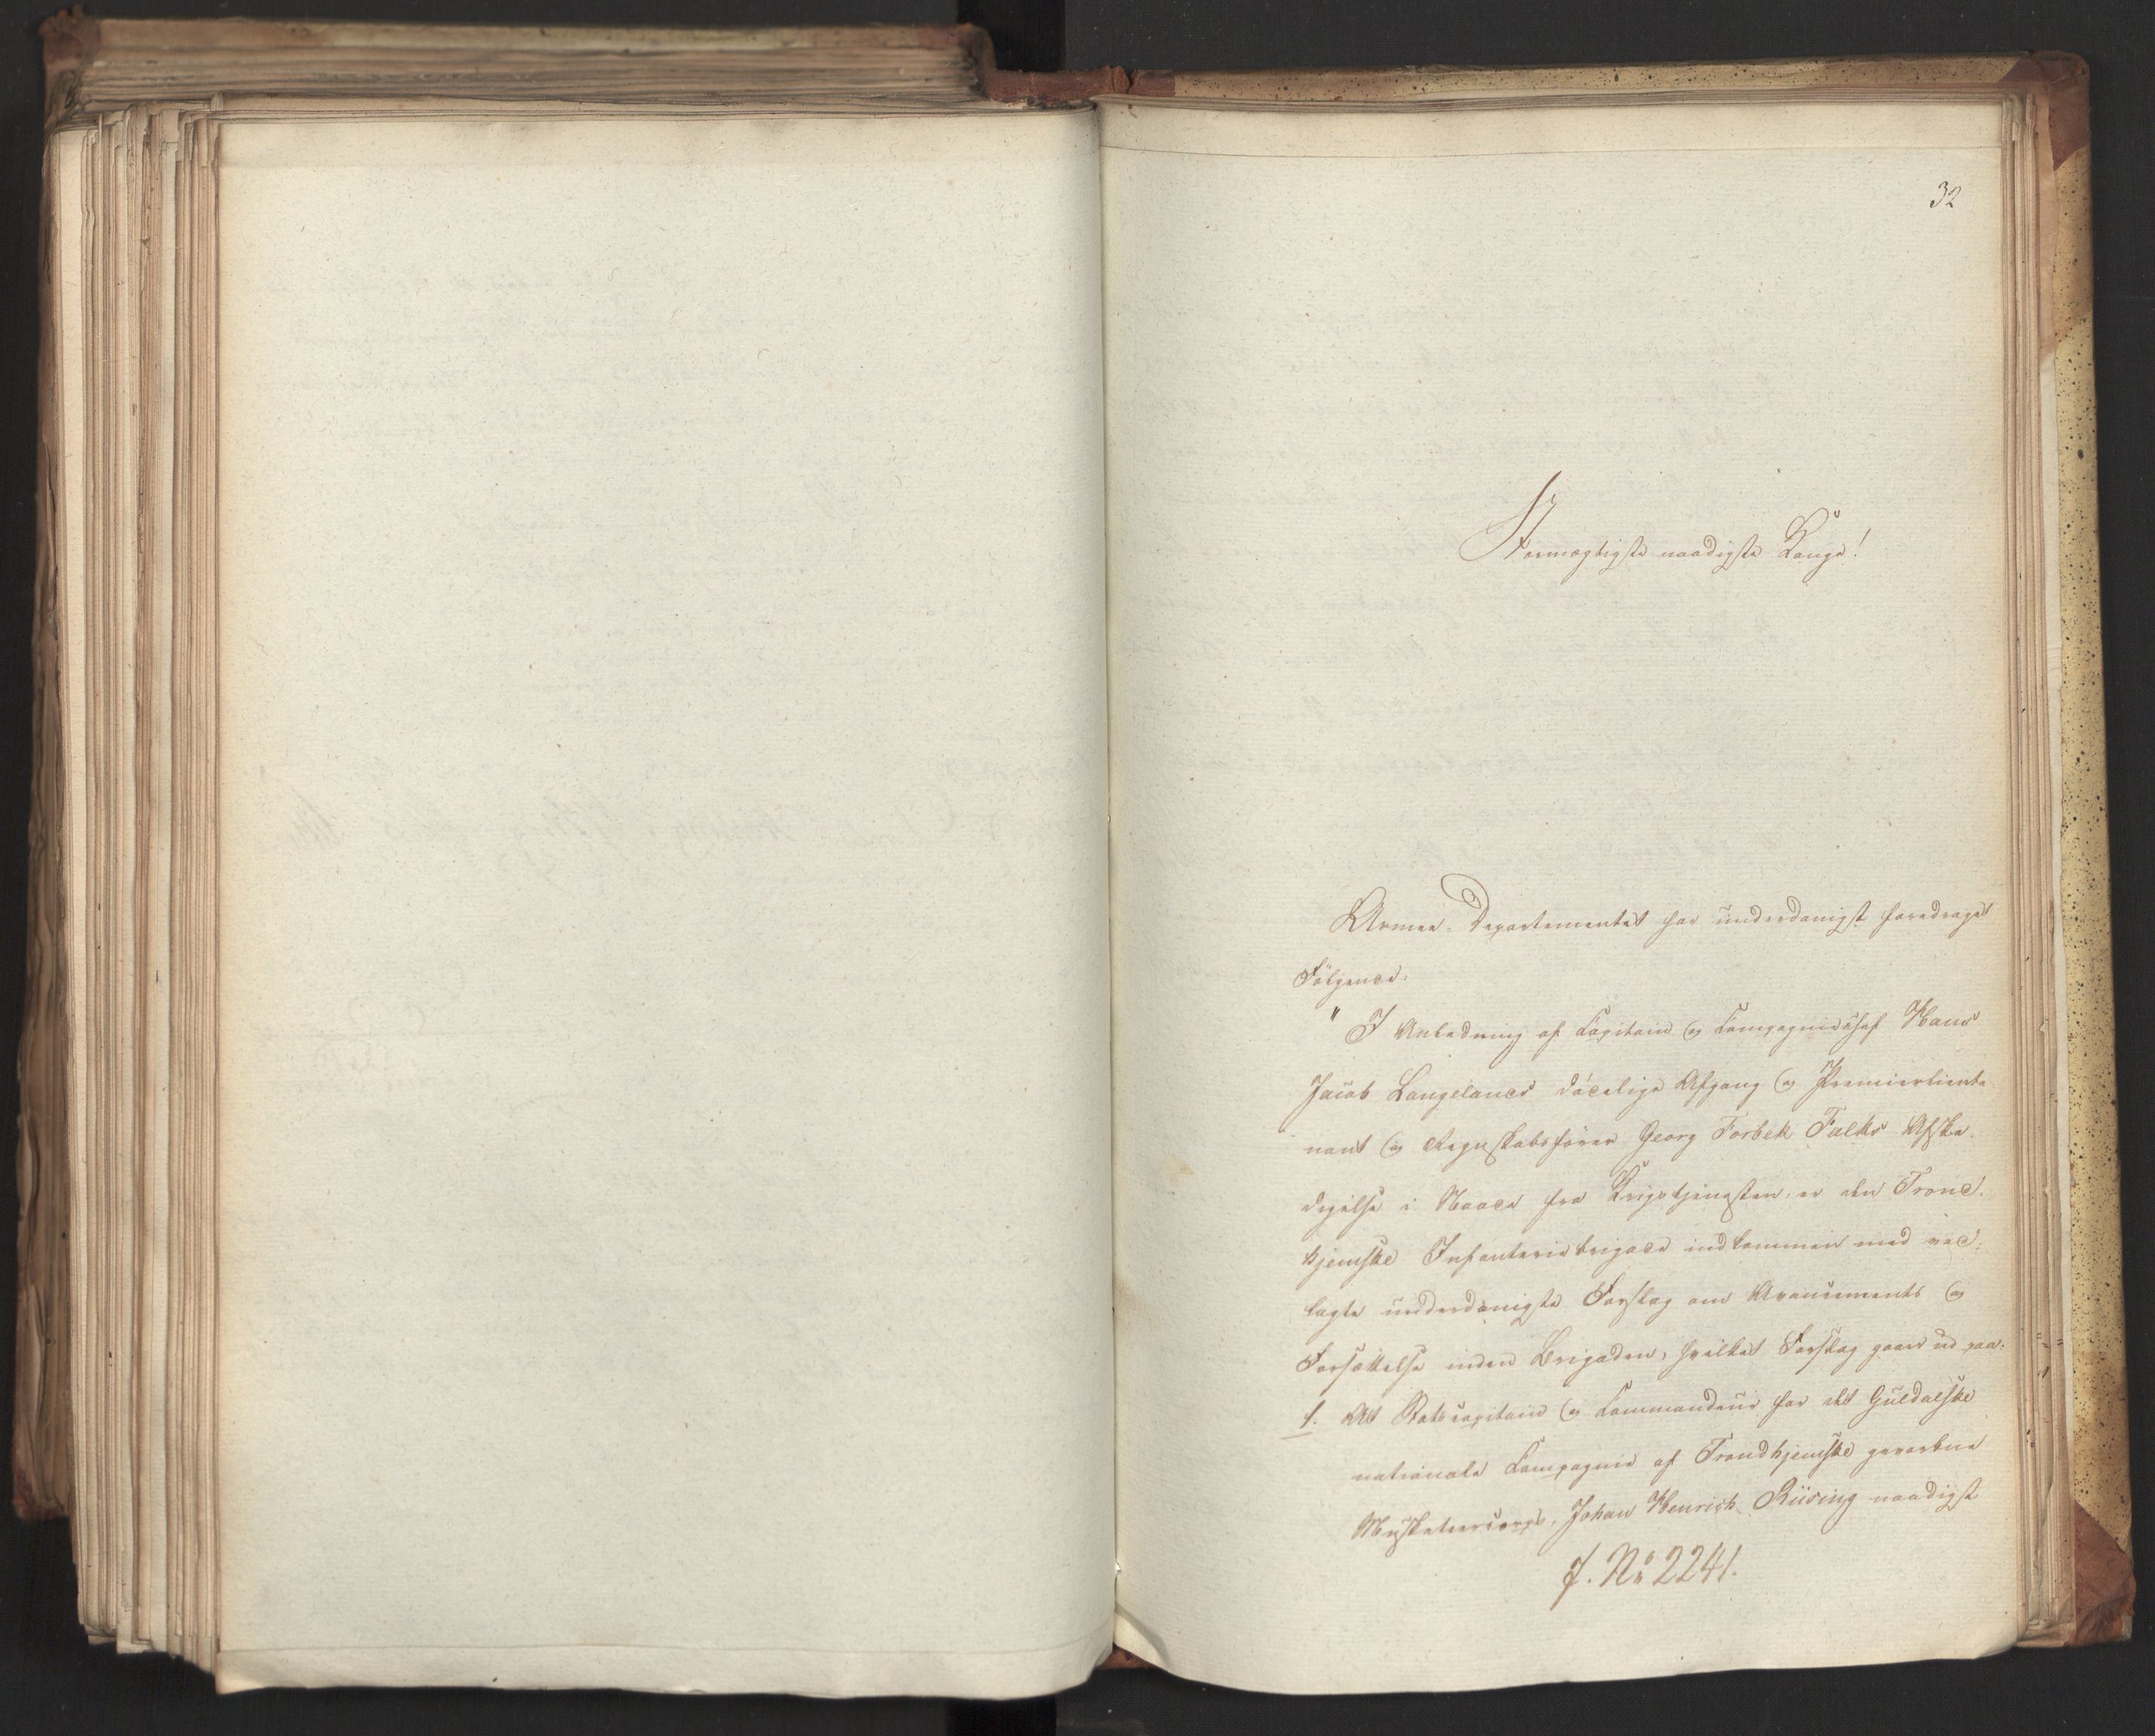 32
Stormægtigste naadigste Konge!
Armee-Departementet har underdanigst foredraget
Fölgende:
" I Anledning af Capitain og Compagniechef Hans
Jacob Langelands dödelige Afgang og Premierlieute-
nant og Regnskabsförer Georg Forbek Falks Afske-
digelse i Naade fra Krigstjenesten, er den Trond-
hjemske Infanteriebrigade indkommen med ved-
lagte underdanigste Forslag om Avancements og
Forsættelse inden Brigaden, hvilket Forslag gaaer ud paa:
1. At Statscapitain og Commandeur for det Guldalske
nationale Compagnie af Trondhjemske gevorbne
Musketeercorps, Johan Henrich Rüsing naadigst
J. No 2241.